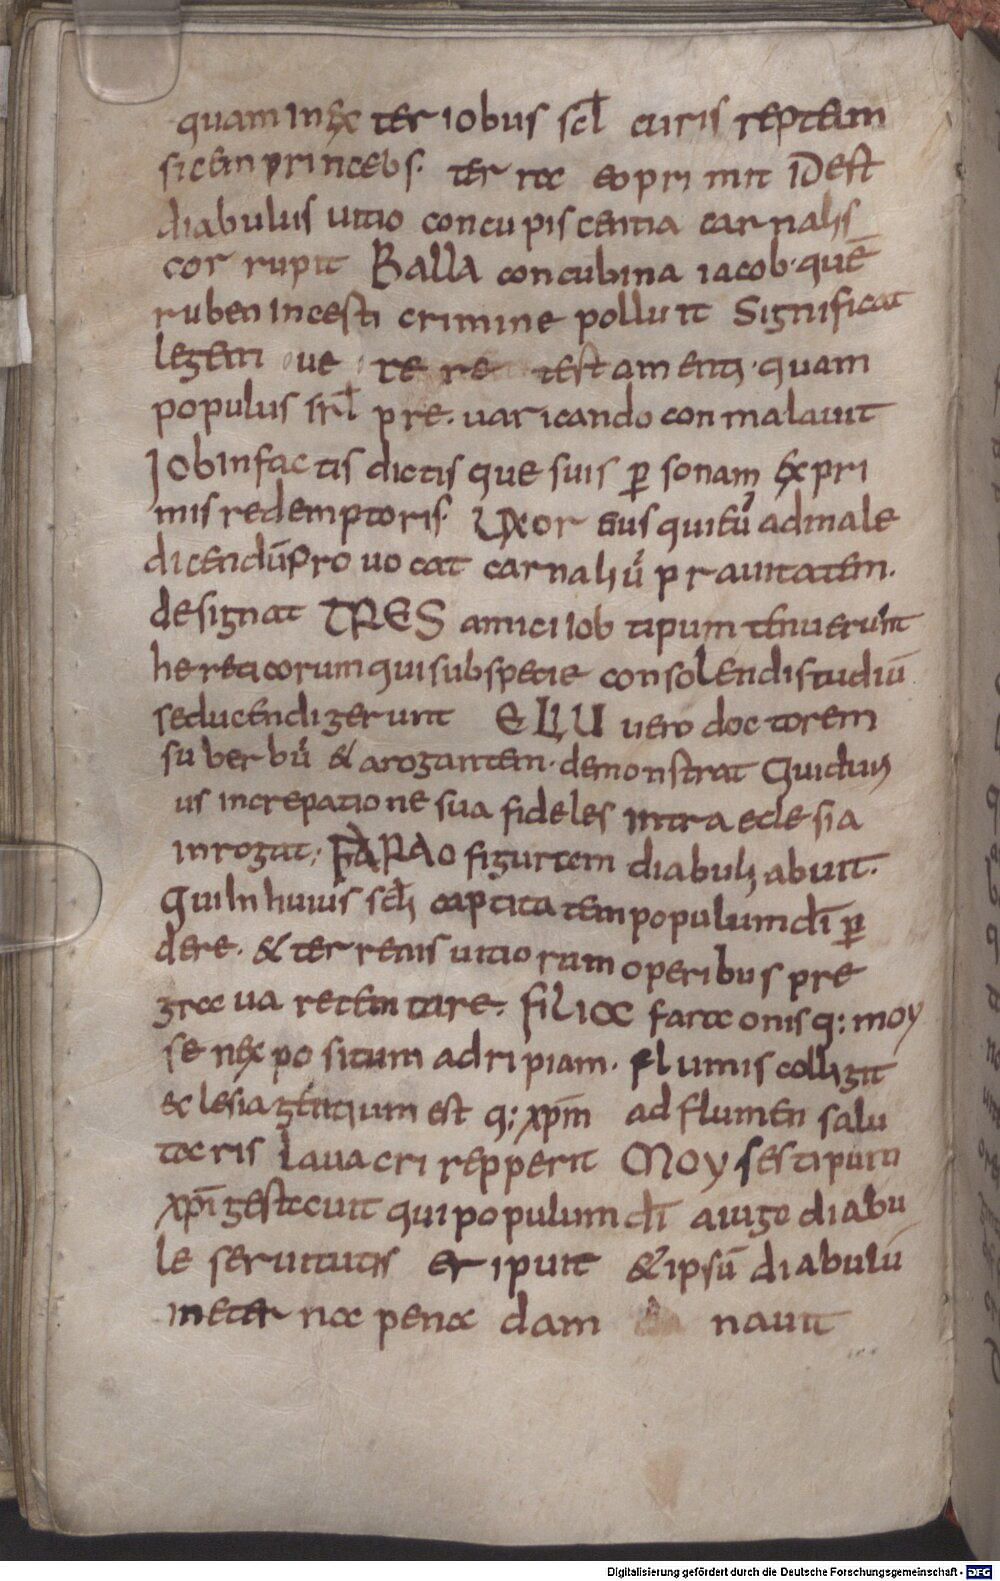 quam in exteriobus scl curis reptam
sicem princebs. terrae eopri mit idest
diabulus uitio concupiscentia carnalis
corrupit Balla concubina iacob. quē
ruben incesti crimine polluit Significat
legem ue te re testamenti. quam
populus srl pre. uaricando conmalauit
Iob in factis dictis que suis ꝑsonam expri
mis redemptoris. Uxor eius qui eū ad male
dicendū prouocat carnaliū prauitatem.
designat TRES amici iob tipum tenuerunt
hereticorum qui sub specie consolendi studiū
seducendi gerunt ELIU uero doctorem
suberbū & arogantem. demonstrat Quidun
us increpatione sua fideles intra eclesia
inrogat; FARAO figurtem diabuli abuit.
Qui in huius scli captita tem populum dī ꝑ
dere. & terrenis uitiorum operibus pre
graua retemtare. filia faraonis q: moy
se nex positum ad ripiam. flumis colligit
eclesia gentium est q: xpm ad flumen salu
taris lauacri repperit Moyses tipum
xpi gestauit qui populum dī a iugo diabu
le seruitutis eripuit & ipsū diabulū
in eterna pena dam nauit
Digitalisierung gefördert durch die Deutsche Forschungsgemeinschaft - DFG